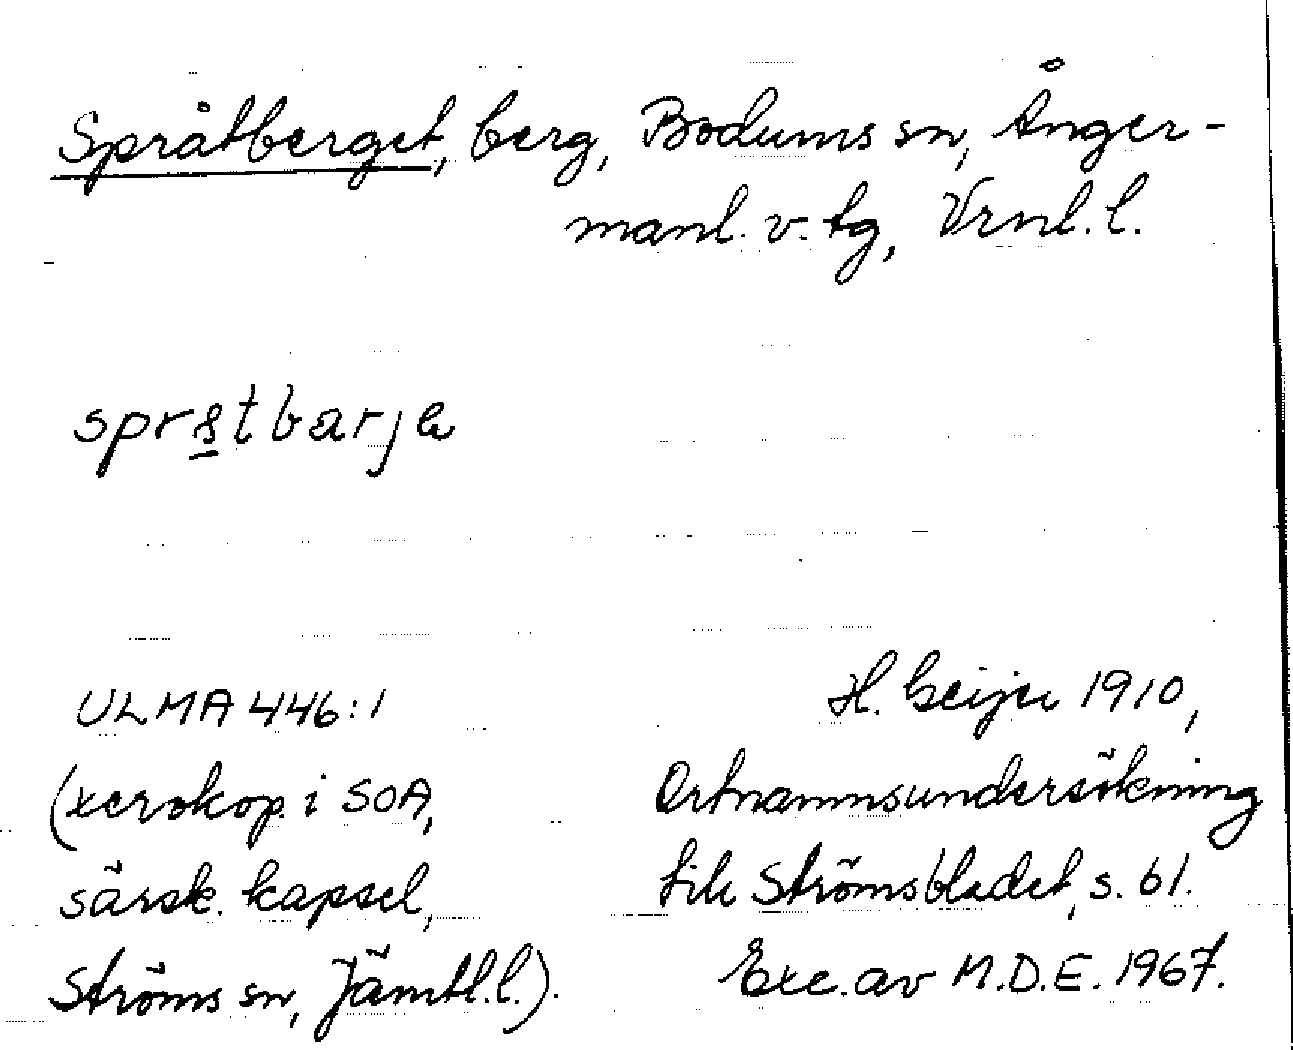 Språtberget, berg, Bodums sn, Ånger-
manl. v. tg, Vrnl. l.
ULMA 446:1
(xerokop. i SOA,
särsk. kapsel,
Ströms sn, Jämtl. l.).
H. Geijer 1910,
Ortnamnsundersökning
till Strömsbladet, s. 61.
Exc. av M.D.E. 1967.